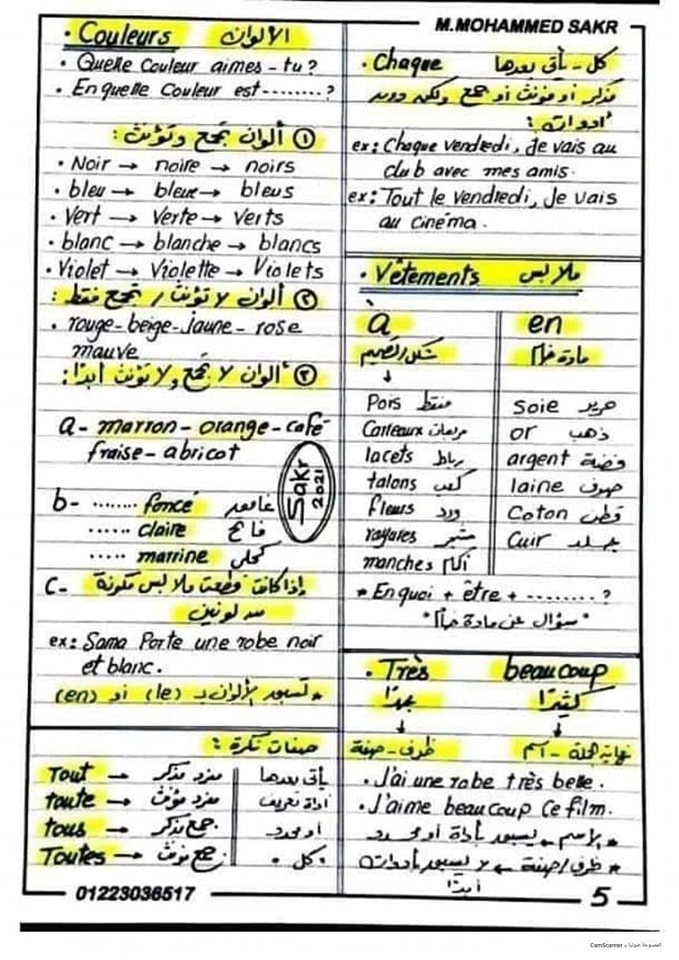 M.MOHAMMED SAKR
• Couleurs الألوان
• Quelle Couleur aimes-tu?
• En quelle Couleur est........?
① ألوان تجمع وتؤنث:
• Noir → noire → noirs
• bleu → bleue → bleus
• Vert → Verte → Verts
• blanc → blanche → blancs
• Violet → Violette → Violets
② ألوان لا تؤنث / تجمع فقط:
• rouge-beige-jaune-rose
mauve
③ ألوان لا تجمع ولا تؤنث أبدًا:
a- marron-orange-café
fraise-abricot
b- ........ foncé غامق
...... claire فاتح
..... marrine كحلي
C- إذا كانت قطعت ملابس مكونة
من لونين
ex: Sama Porte une robe noir
et blanc.
* تسبق الألوان بـ (le) أو (en)
Sakr
2021
صفات نكرة:
Tout → مفرد مذكر
toute → مفرد مؤنث
tous → جمع مذكر
Toutes → جمع مؤنث
يأتى بعدها
أداة تعريف
أو محدد
• كل •
• Chaque كل - يأتى بعدها
مذكر أو مؤنث أو جمع ولكن دون
أدوات:
ex: Chaque vendredi, je vais au
club avec mes amis.
ex: Tout le vendredi, Je vais
au cinéma.
• Vêtements ملابس
à
شكل التصميم
↓
Pois منقط
Carreaux مربعات
lacets رباط
talons كعب
fleurs ورد
rayules مشجر
manches أكمام
en
مادة خام
Soie حرير
or ذهب
argent فضة
laine صوف
Coton قطن
Cuir جلد
* En quoi + être + ........?
"سؤال عن مادة خام"
• Très beaucoup
جدًا كثيرًا
↓ ↓
ظرف - صفة نهاية الجملة - اسم
• J'ai une robe très belle.
• J'aime beaucoup ce film.
* الاسم ← يسبق بأداة أو محدد
* ظرف/صفة ← لا يسبق بأدوات
أبدًا
01223036517
5
CamScanner الممسوحة ضوئيا بـ